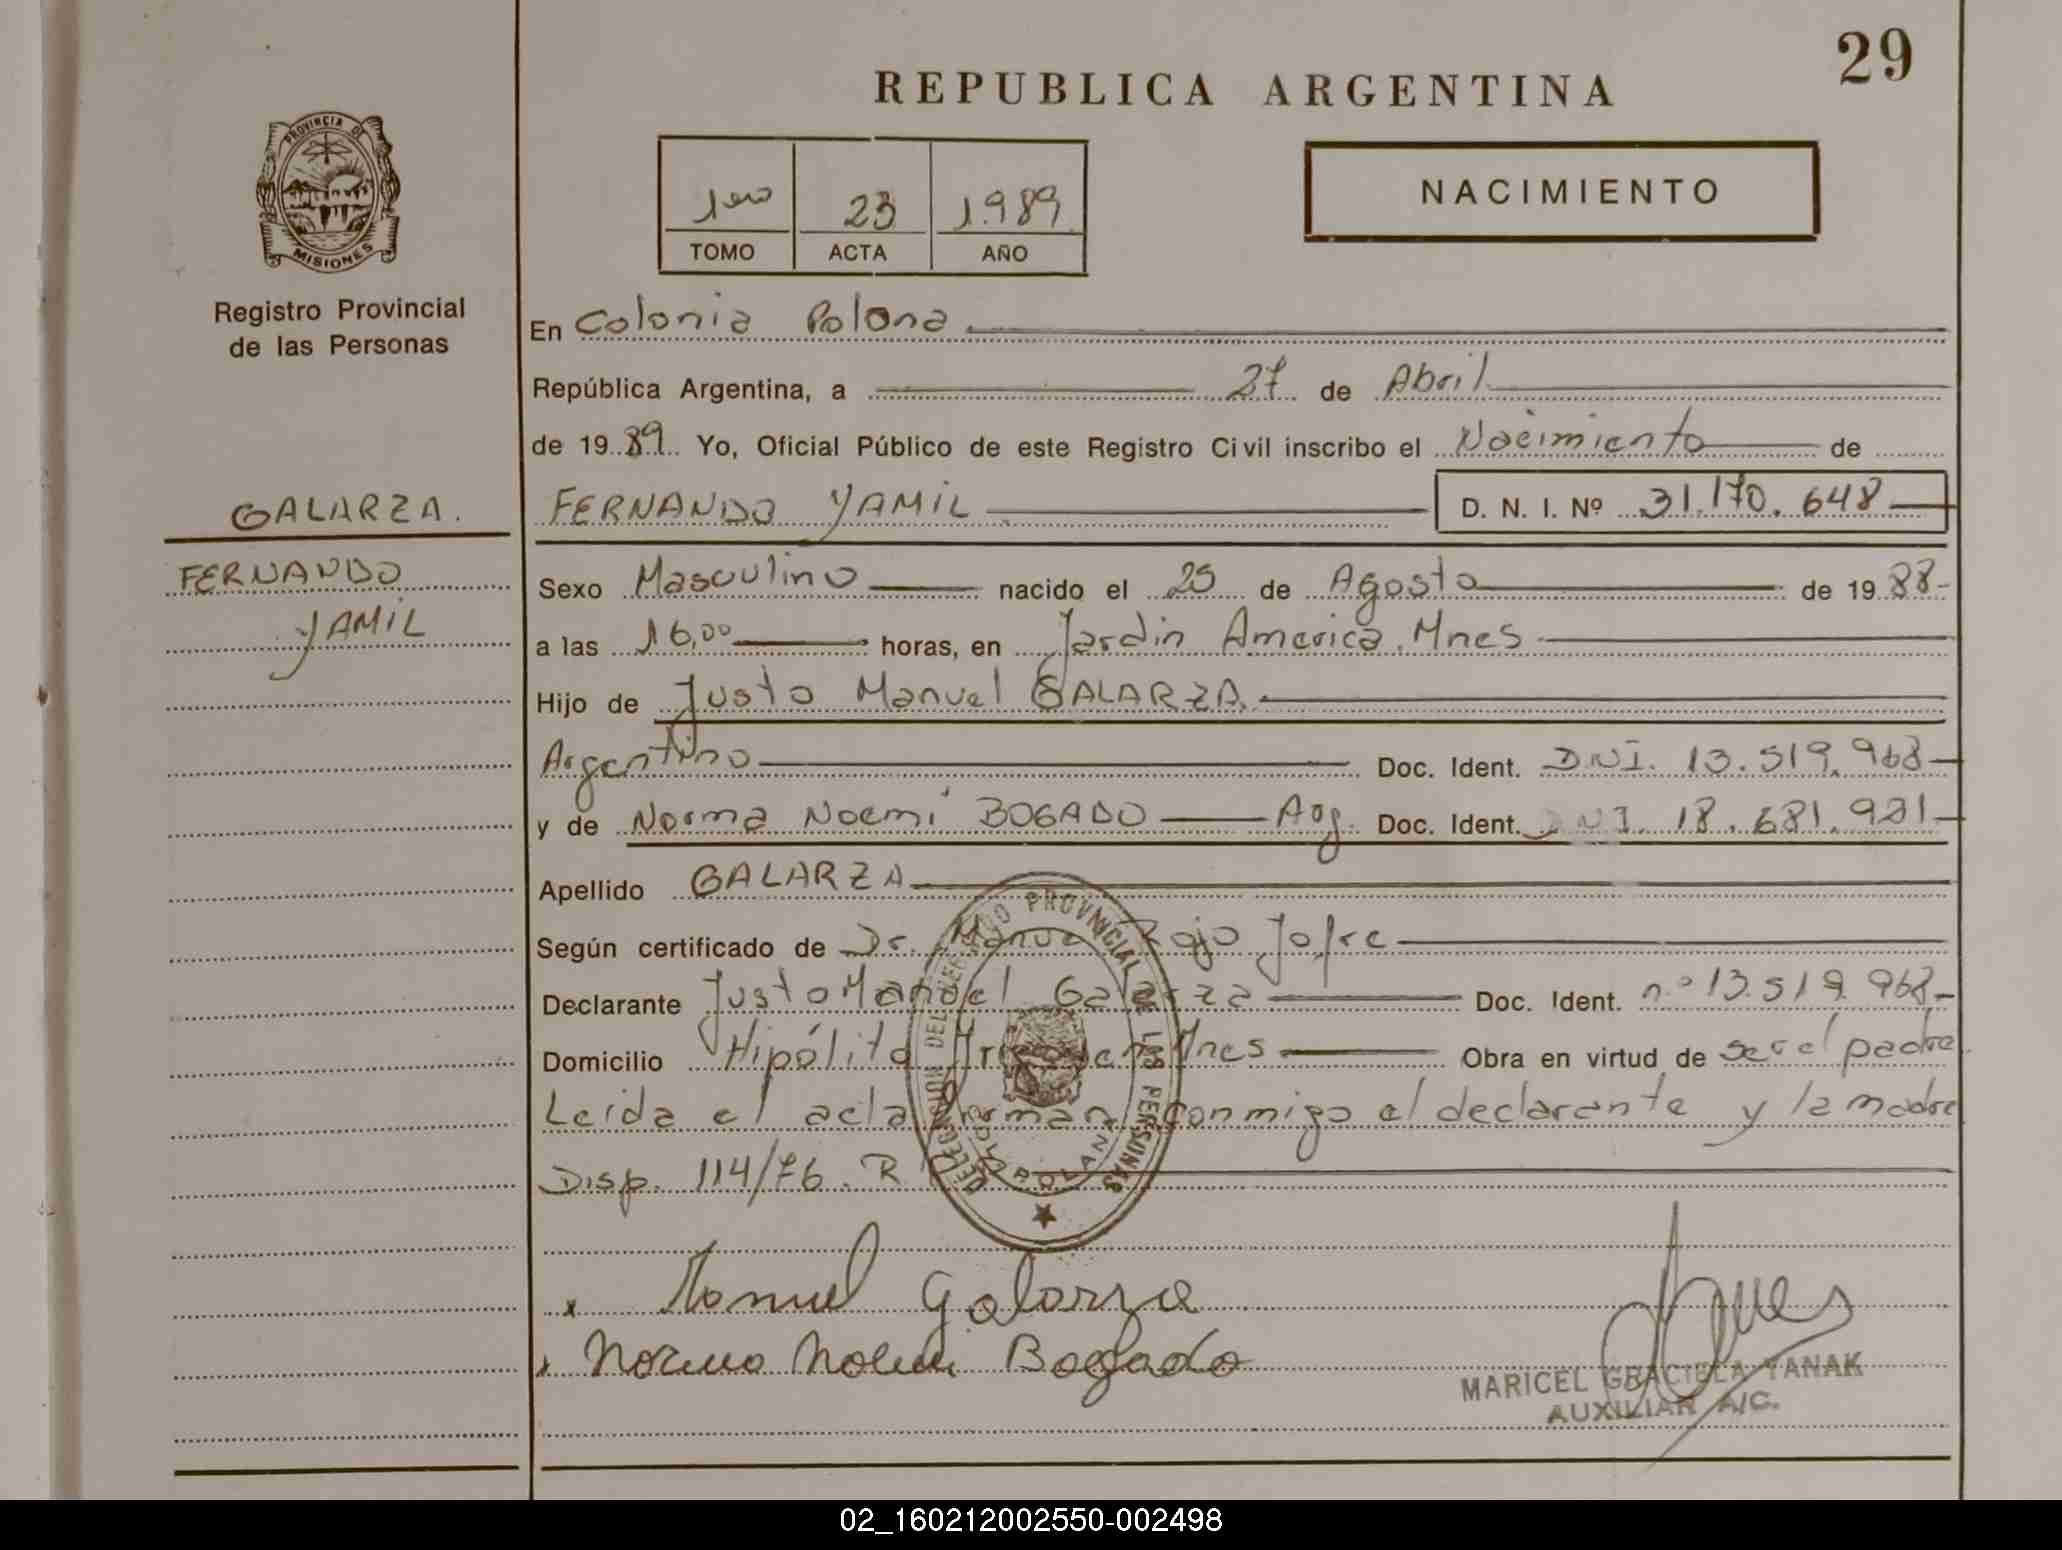 29
REPUBLICA ARGENTINA
PROVINCIA DE
MISIONES
Registro Provincial
de las Personas
1ero 23 1.989
TOMO ACTA AÑO
NACIMIENTO
En Colonia Polona
República Argentina, a 27 de Abril
de 19 89 Yo, Oficial Público de este Registro Civil inscribo el Nacimiento de
GALARZA.
FERNANDO YAMIL D. N. I. Nº 31.170.648
FERNANDO
YAMIL
Sexo Masculino nacido el 25 de Agosto de 19 88
a las 16,00 horas, en Jardin America. Mnes
Hijo de Justo Manuel GALARZA.
Argentino Doc. Ident. DNI. 13.519.968
y de Norma Noemí BOGADO Arg. Doc. Ident. DNI. 18.681.921
Apellido GALARZA
Según certificado de Dr. Manuel Rojo Jofre
Declarante Justo Manuel Galarza Doc. Ident. nº 13.519.968
Domicilio Hipólito Mnes Obra en virtud de ser el padre
Leida el acta firman conmigo el declarante y la madre
Disp. 114/76. R
DELEGACION DEL REGISTRO PROVINCIAL DE LAS PERSONAS
Manuel Galarza
Norma Noemi Bogado
MARICEL GRACIELA TANAK
AUXILIAR A/C.
02_160212002550-002498